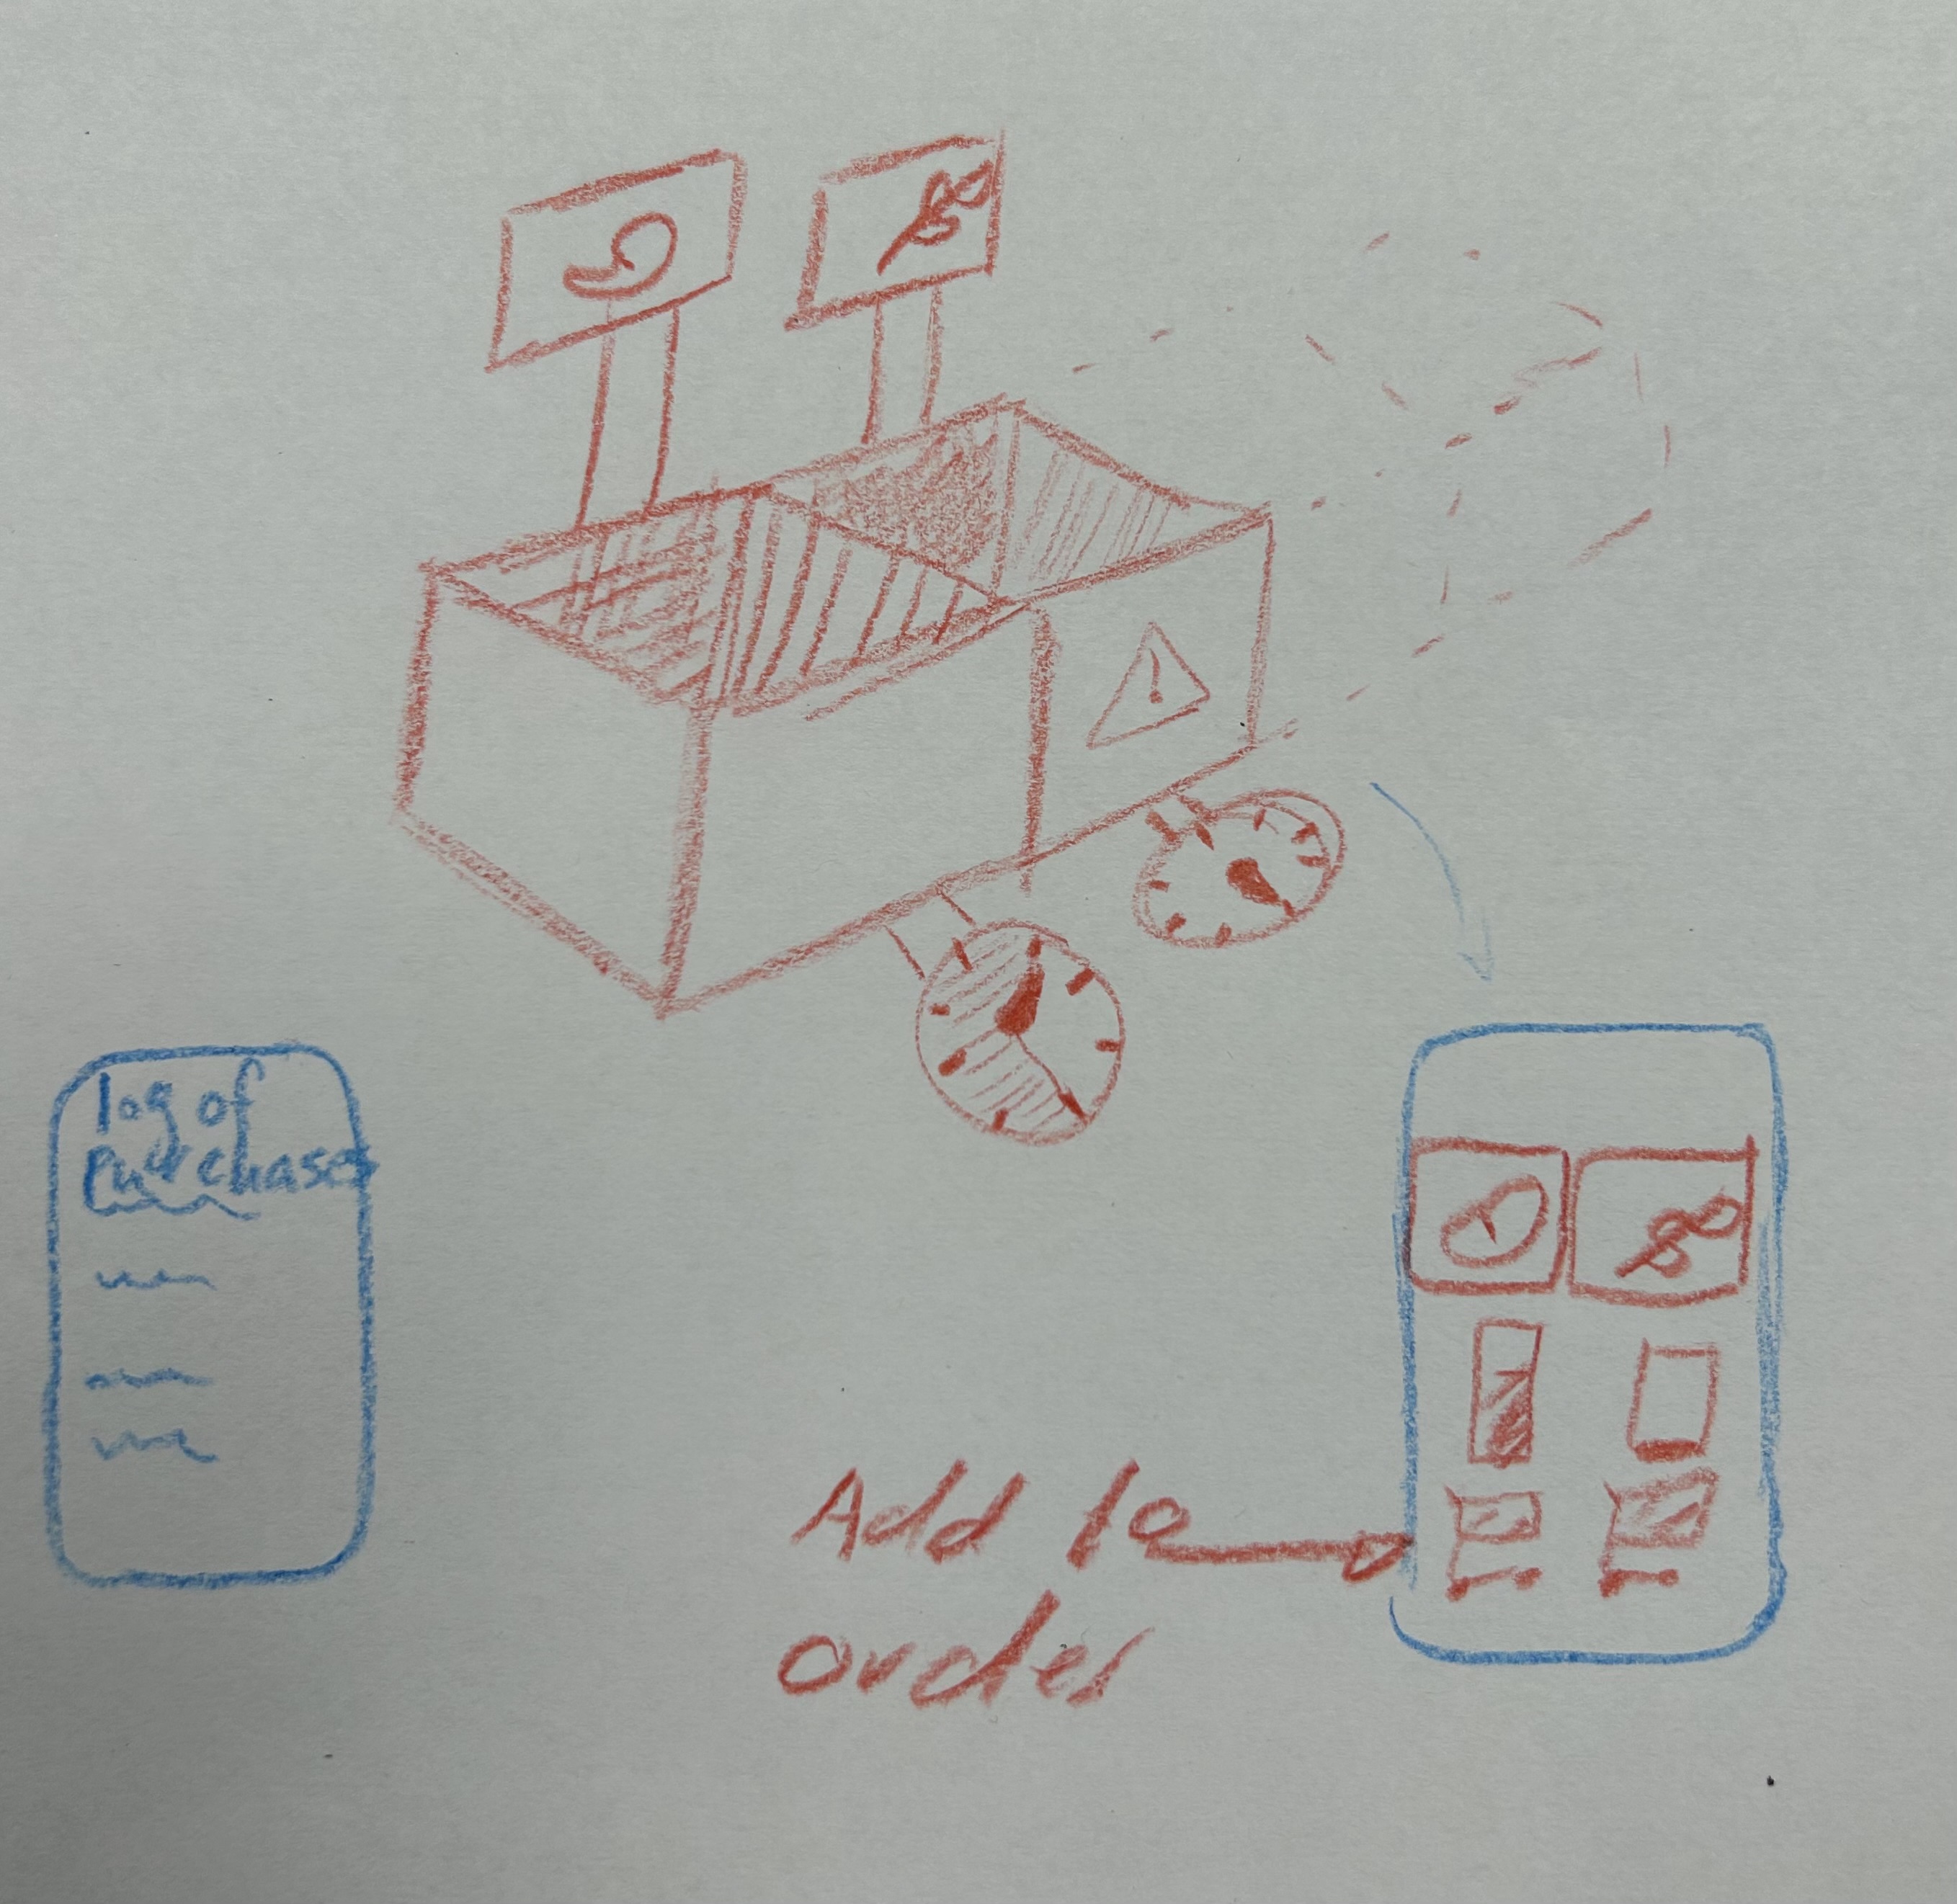 !
log of
Purchases
Add to
order